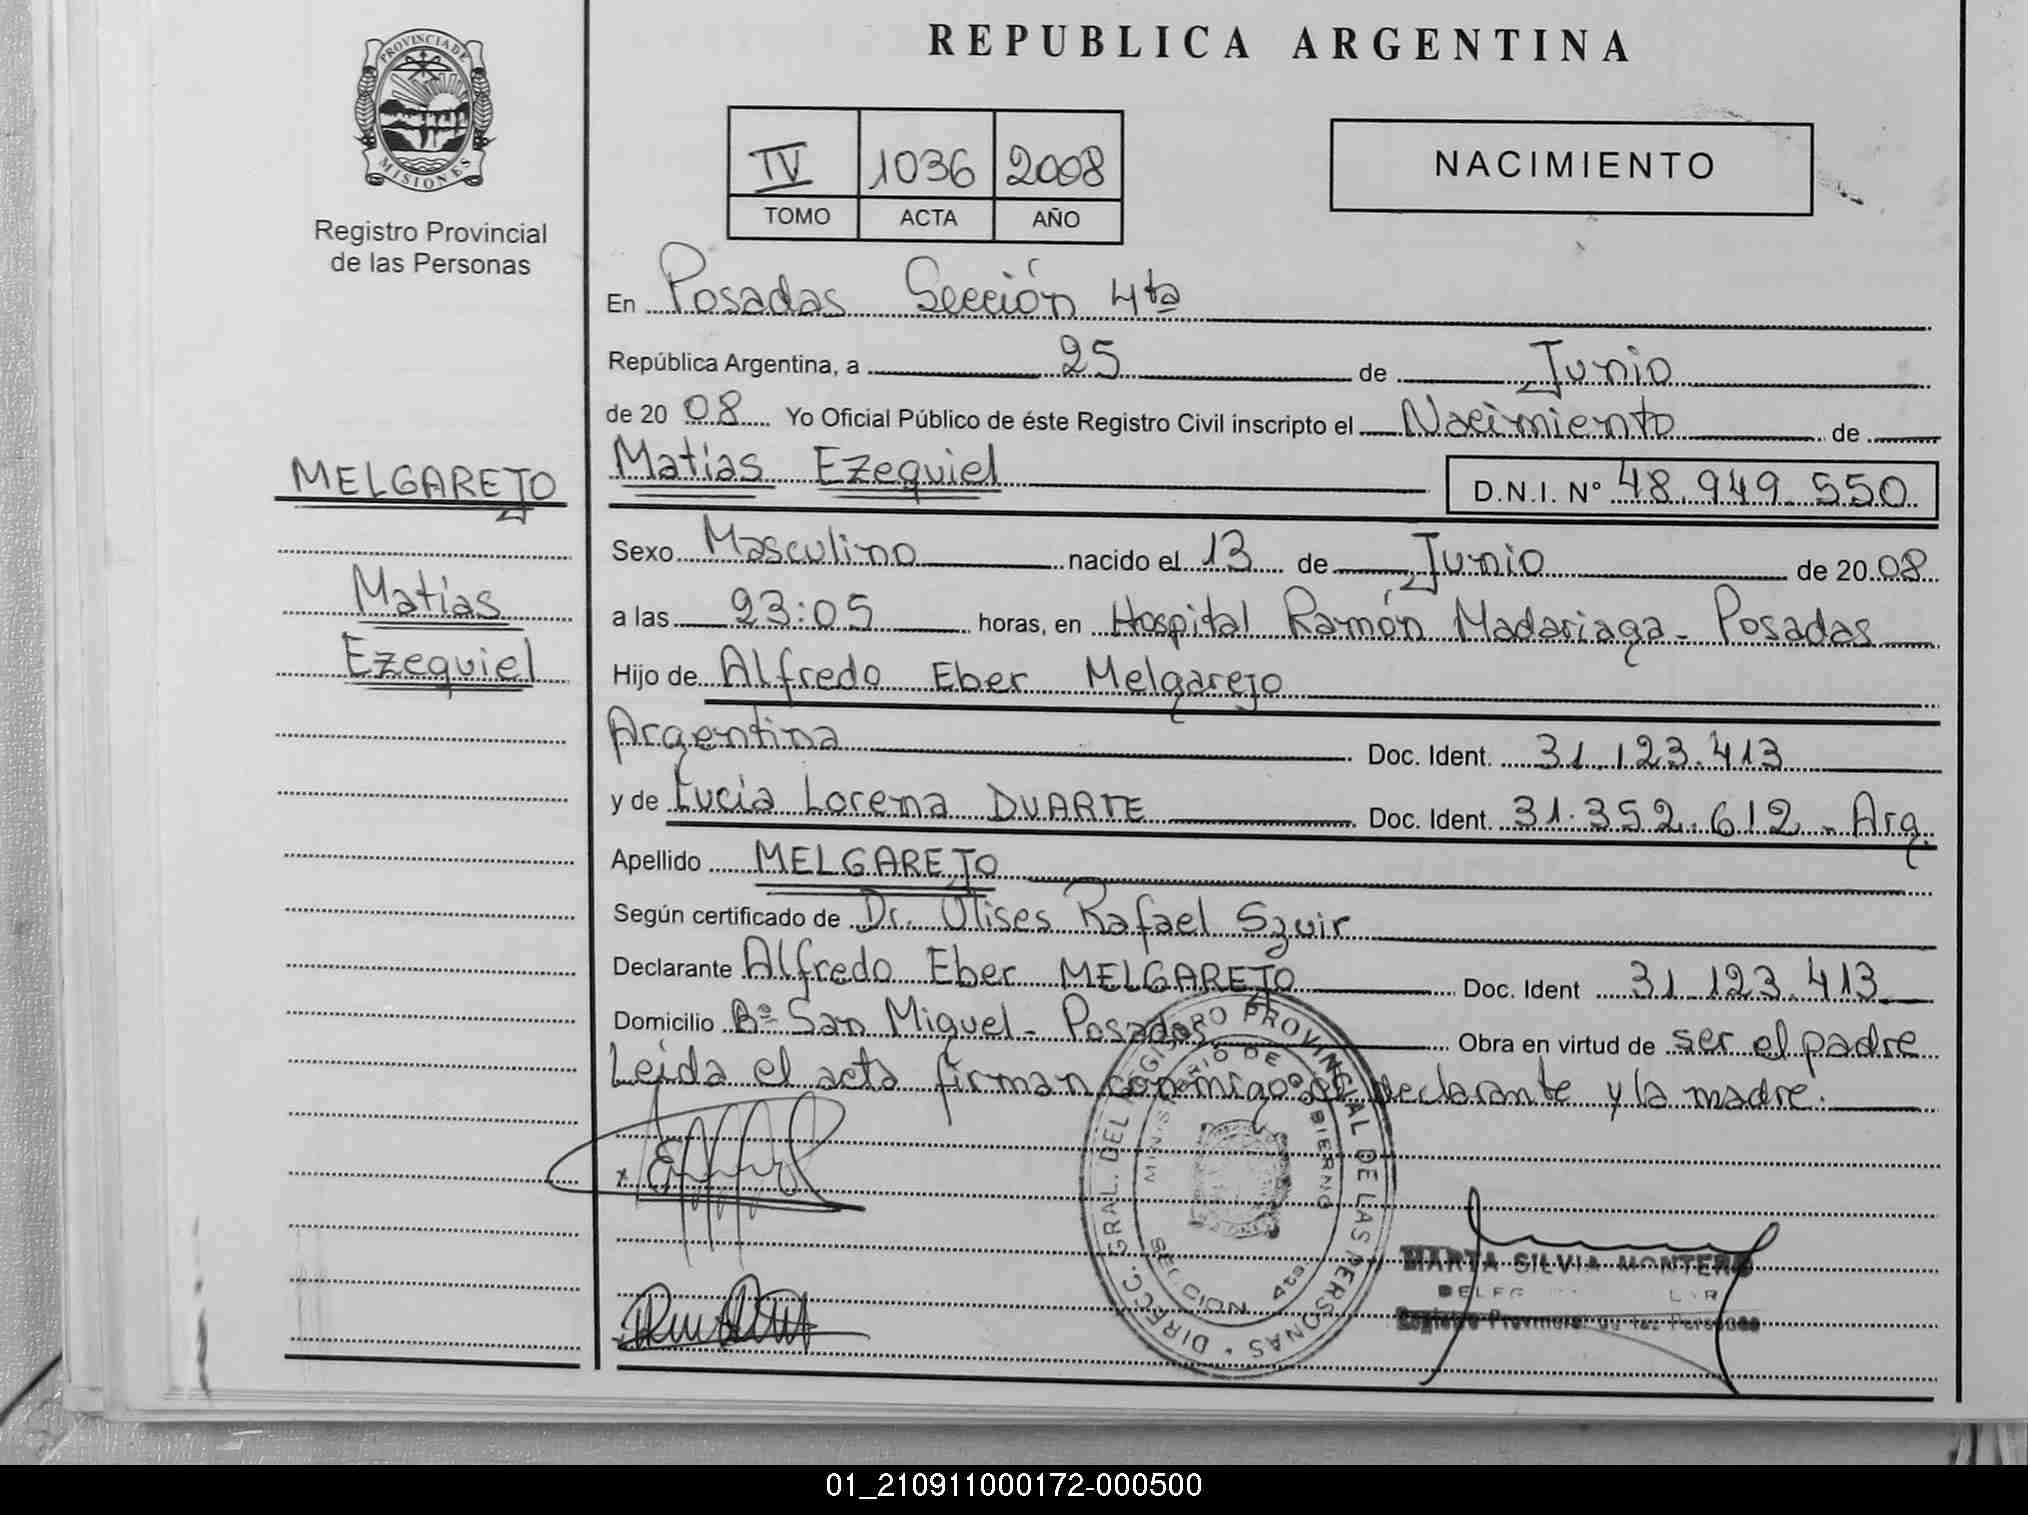 REPUBLICA ARGENTINA
PROVINCIA DE
MISIONES
Registro Provincial
de las Personas
IV 1036 2008
TOMO ACTA AÑO
NACIMIENTO
En Posadas Sección 4ta
República Argentina, a 25 de Junio
de 20 08 Yo Oficial Público de éste Registro Civil inscripto el Nacimiento de
MELGAREJO
Matias Ezequiel D.N.I. N° 48.949.550
Sexo Masculino nacido el 13 de Junio de 20 08
Matias
a las 23:05 horas, en Hospital Ramón Madariaga - Posadas
Ezequiel
Hijo de Alfredo Eber Melgarejo
Argentina Doc. Ident. 31.123.413
y de Lucia Lorena DUARTE Doc. Ident. 31.352.612 - Arg.
Apellido MELGAREJO
Según certificado de Dr. Ulises Rafael Szuir
Declarante Alfredo Eber MELGAREJO Doc. Ident 31.123.413
Domicilio B° San Miguel - Posadas Obra en virtud de ser el padre
Leida el acta firman conmigo el declarante y la madre.
DIRECC. GRAL. DEL REGISTRO PROVINCIAL DE LAS PERSONAS
MINISTERIO DE GOBIERNO
SECCION 4ta.
MARTA SILVIA MONTERO
Registro Provincial de las Personas
01_210911000172-000500